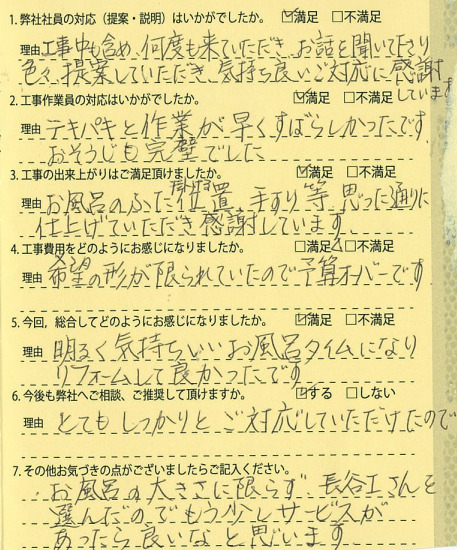 1. 弊社社員の対応（提案・説明）はいかがでしたか。 ☑満足 □不満足
理由 工事中も含め、何度も来ていただき お話を聞いて下さり
色々 提案していただき 気持ち良いご対応に感謝
しています
2. 工事作業員の対応はいかがでしたか。 ☑満足 □不満足
理由 テキパキと作業が早くすばらしかったです
おそうじも完璧でした
3. 工事の出来上がりはご満足頂けましたか。 ☑満足 □不満足
理由 お風呂のふた 位置、手すり等 思った通りに
仕上げていただき感謝しています
4. 工事費用をどのようにお感じになりましたか。 □満足△□不満足
理由 希望の形が限られていたので予算オーバーです
5. 今回，総合してどのようにお感じになりましたか。 ☑満足 □不満足
理由 明るく気持ちいいお風呂タイムになり
リフォームして良かったです
6. 今後も弊社へご相談、ご推奨して頂けますか。 ☑する □しない
理由 とてもしっかりと ご対応していただけたので
7. その他お気づきの点がございましたらご記入ください。
お風呂の大きさに限らず 長谷工さんを
選んだのでもう少しサービスが
あったら良いなと思います